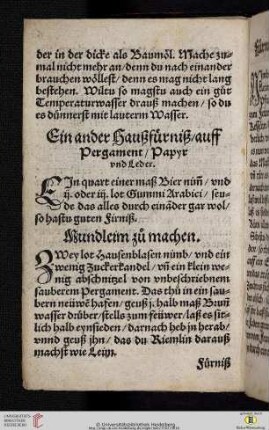 der in der dicke als Baumöl. Mache zu⸗
mal nicht mehr an / denn du nach einander
brauchen wöllest / denn es mag nicht lang
bestehen. Wiltu so magstu auch ein gůt
Temperaturwasser drauß machen / so du
es dünnerst mit lauterm Wasser.
Ein ander Haußfürniß / auff
Pergament / Papyr
vnd Leder.
EIn quart einer maß Bier nim̃ / vnd
ij. oder iij. lot Gummi Arabici / seu⸗
de das alles durch einãder gar wol /
so hastu guten Fürniß.
Mundleim zů machen.
ZWey lot Hausenblasen nimb / vnd ein
wenig Zuckerkandel / vñ ein klein we⸗
nig abschnitzel von vnbeschriebnem
sauberem Pergament. Das thů in ein sau⸗
bern neüwẽ hafen / geuß j. halb maß Brun̄
wasser drüber / stells zum feüwer / laß es sit⸗
lich halb eynsieden / darnach heb jn herab /
vnnd geuß jhn / das du Riemlin darauß
machst wie Leim.
Fürniß
© Universitätsbibliothek Heidelberg